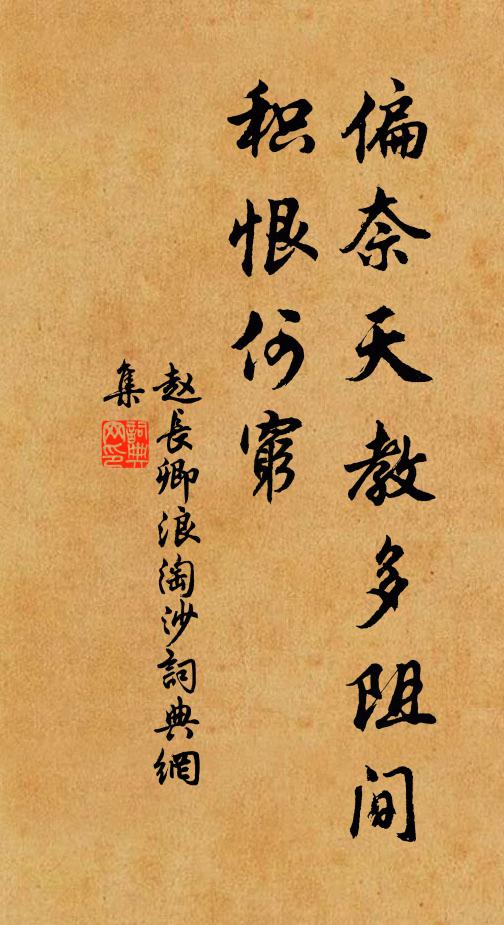 偏奈天教多阻间
积恨何穷
赵长卿浪淘沙詞典網
集
詞典网印